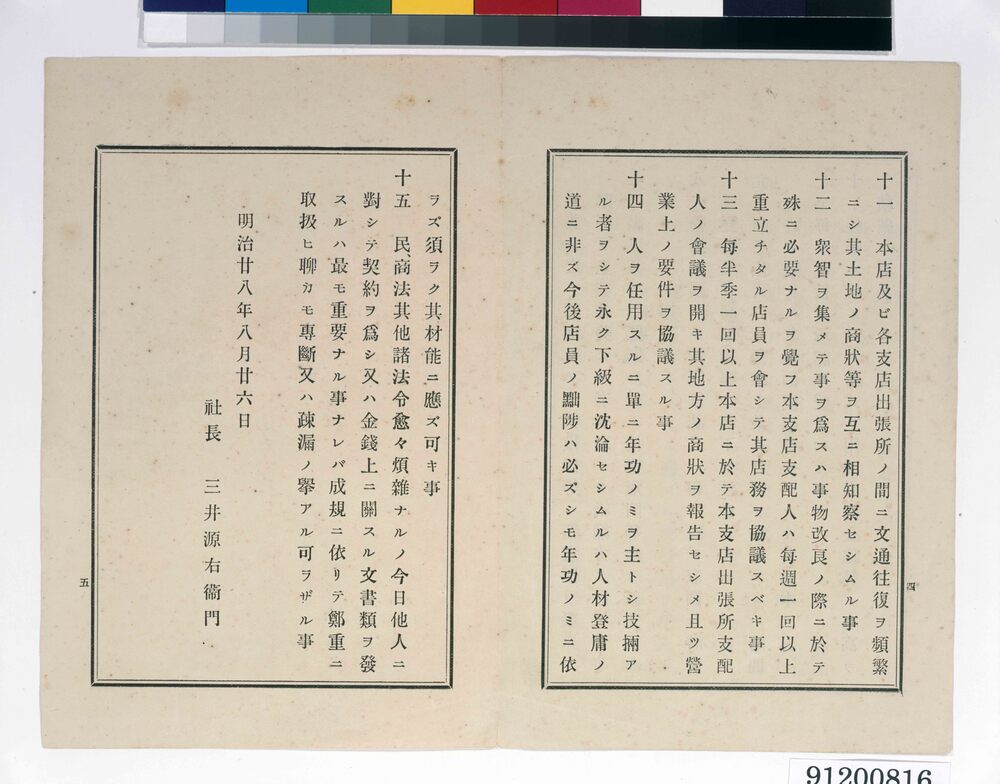 十一 本店及ビ各支店出張所ノ間ニ文通往復ヲ頻繁
ニシ其土地ノ商狀等ヲ互ニ相知察セシムル事
十二 衆智ヲ集メテ事ヲ爲スハ事物改良ノ際ニ於テ
殊ニ必要ナルヲ覺フ本支店支配人ハ每週一回以上
重立チタル店員ヲ會シテ其店務ヲ協議スベキ事
十三 每半季一回以上本店ニ於テ本支店出張所支配
人ノ會議ヲ開キ其地方ノ商狀ヲ報告セシメ且ツ營
業上ノ要件ヲ協議スル事
十四 人ヲ任用スルニ單ニ年功ノミヲ主トシ技倆ア
ル者ヲシテ永ク下級ニ沈淪セシムルハ人材登庸ノ
道ニ非ズ今後店員ノ黜陟ハ必ズシモ年功ノミニ依
四
ラズ須ラク其材能ニ應ズ可キ事
十五 民、商法其他諸法令愈々煩雜ナルノ今日他人ニ
對シテ契約ヲ爲シ又ハ金錢上ニ關スル文書類ヲ發
スルハ最モ重要ナル事ナレバ成規ニ依リテ鄭重ニ
取扱ヒ聊カモ專斷又ハ疎漏ノ擧アル可ラザル事
明治廿八年八月廿六日
社長 三井源右衞門
五
91200816